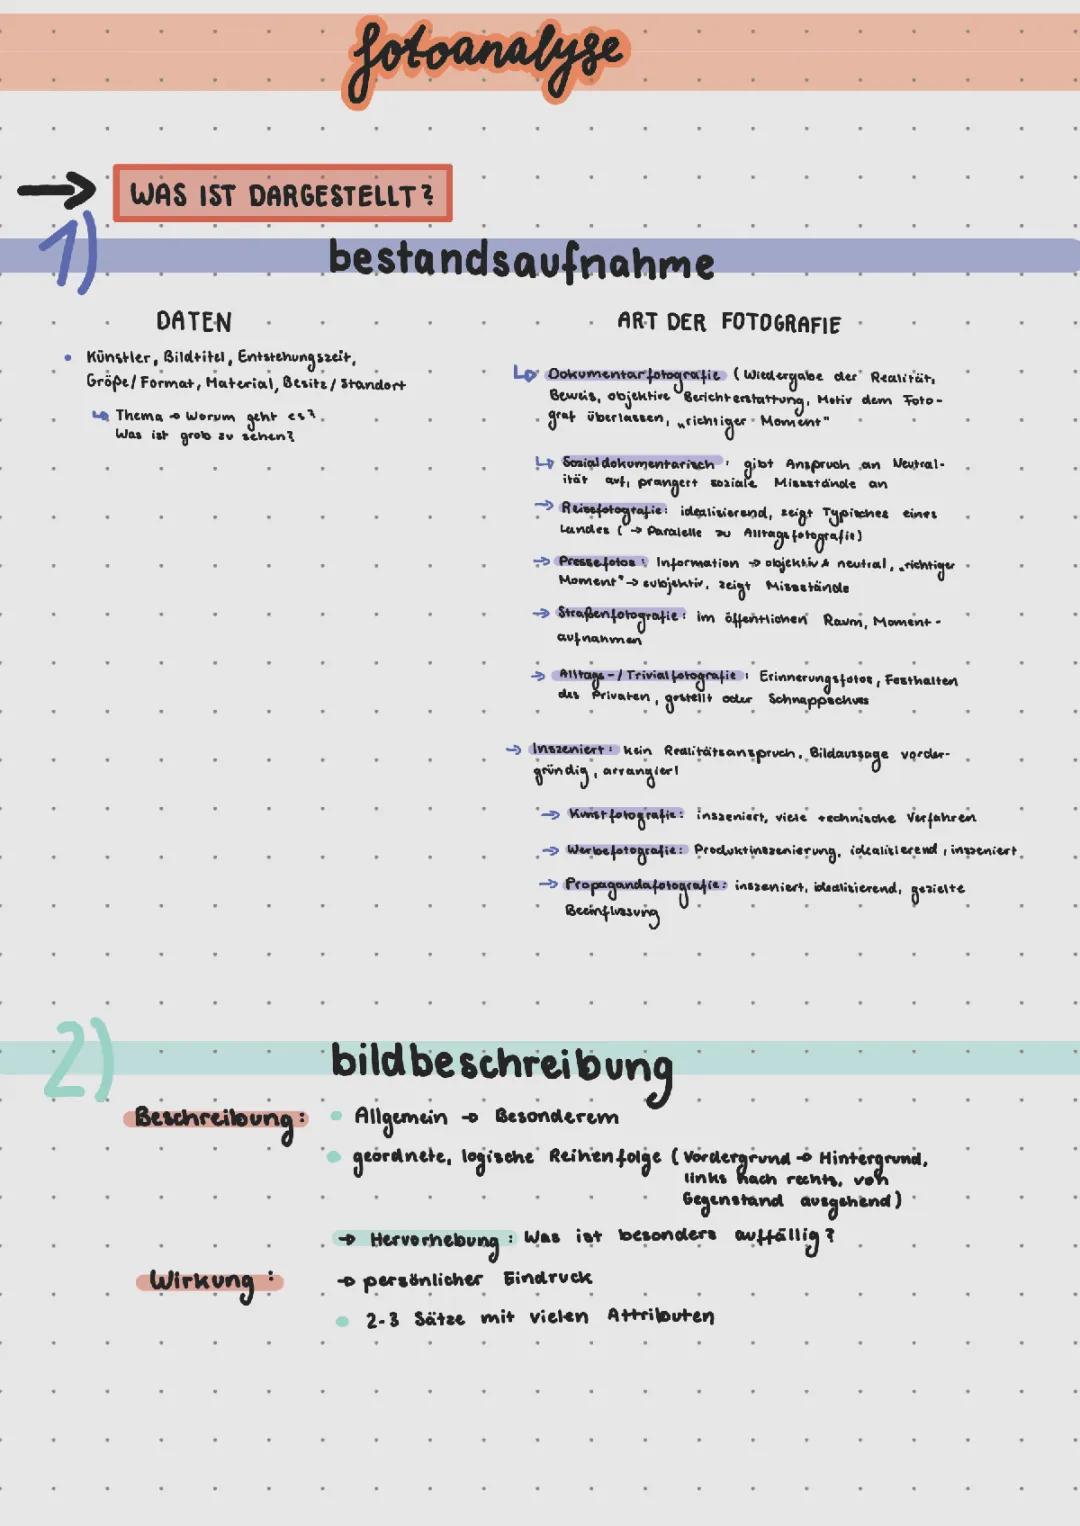 fotoanalyse
→ WAS IST DARGESTELLT?
1) bestandsaufnahme
DATEN
• Künstler, Bildtitel, Entstehungszeit,
Größe/Format, Material, Besitz/Standort
↳ Thema → Worum geht es?
Was ist grob zu sehen?
ART DER FOTOGRAFIE
↳ Dokumentarfotografie (Wiedergabe der Realität,
Beweis, objektive Berichterstattung, Motiv dem Foto-
graf überlassen, „richtiger Moment"
↳ Sozialdokumentarisch: gibt Anspruch an Neutral-
ität auf, prangert soziale Missstände an
→ Reisefotografie: idealisierend, zeigt Typisches eines
Landes (→ Paralelle zu Alltagsfotografie)
→ Pressefotos: Information → objektiv & neutral, „richtiger
Moment" → subjektiv, zeigt Missstände
→ Straßenfotografie: im öffentlichen Raum, Moment-
aufnahmen
→ Alltags-/Trivialfotografie: Erinnerungsfotos, Festhalten
des Privaten, gestellt oder Schnappschuss
→ Inszeniert: kein Realitätsanspruch, Bildaussage vorder-
gründig, arrangiert
→ Kunstfotografie: inszeniert, viele technische Verfahren
→ Werbefotografie: Produktinszenierung, idealisierend, inszeniert
→ Propagandafotografie: inszeniert, idealisierend, gezielte
Beeinflussung
2) bildbeschreibung
Beschreibung: • Allgemein → Besonderem
• geordnete, logische Reihenfolge (Vordergrund → Hintergrund,
links nach rechts, von
Gegenstand ausgehend)
→ Hervorhebung: Was ist besonders auffällig?
Wirkung: → persönlicher Eindruck
• 2-3 Sätze mit vielen Attributen